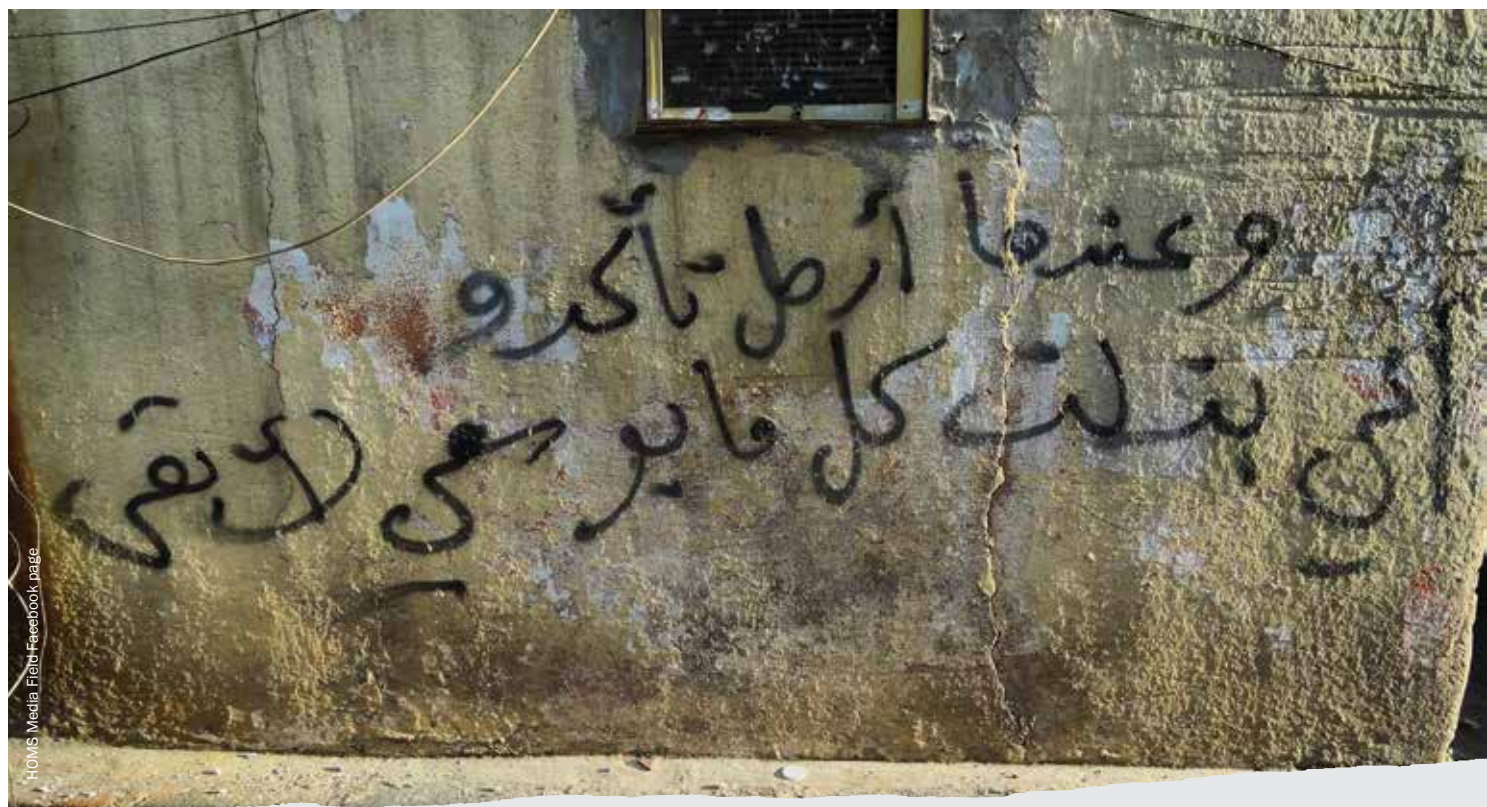 وعندها أرحل تأكدو
أني بذلت كل ما بوسعي لأبقى
HOMS Media Field Facebook page